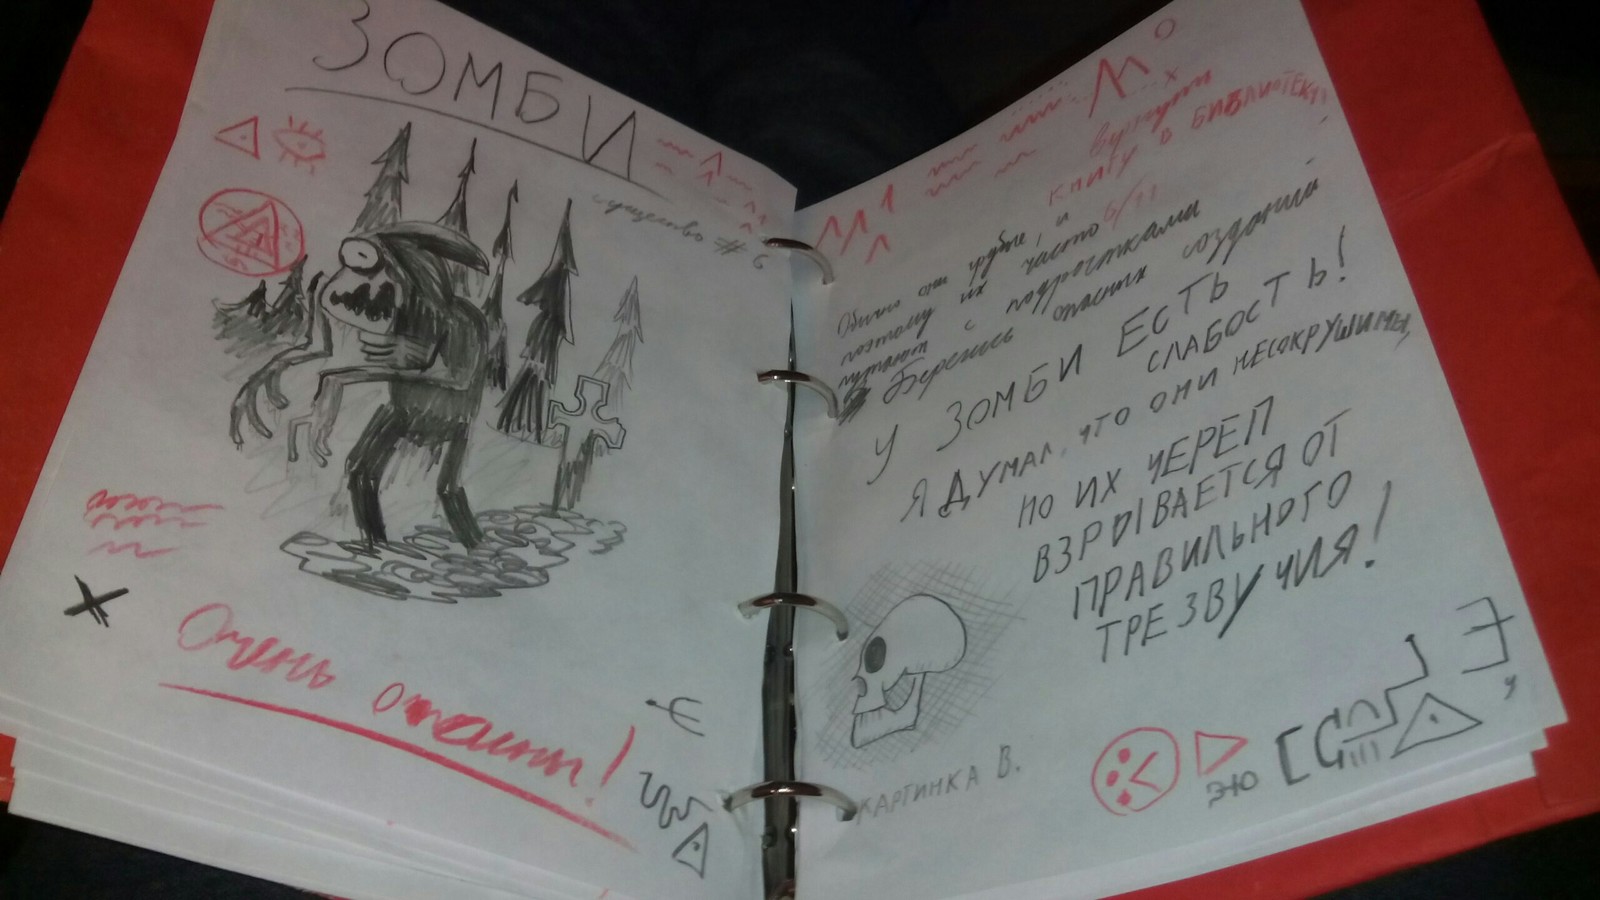 ЗОМБИ
существо # 6
Очень опасны!
вернути
книгу в БИБЛИОТЕКУ
6/11
Обычно они грубые, и
поэтому их часто
путают с подростками
Берегись опасных созданий
У ЗОМБИ ЕСТЬ
СЛАБОСТЬ!
Я ДУМАЛ, ЧТО ОНИ НЕСОКРУШИМЫ,
НО ИХ ЧЕРЕП
ВЗРЫВАЕТСЯ ОТ
ПРАВИЛЬНОГО
ТРЕЗВУЧИЯ!
КАРТИНКА В.